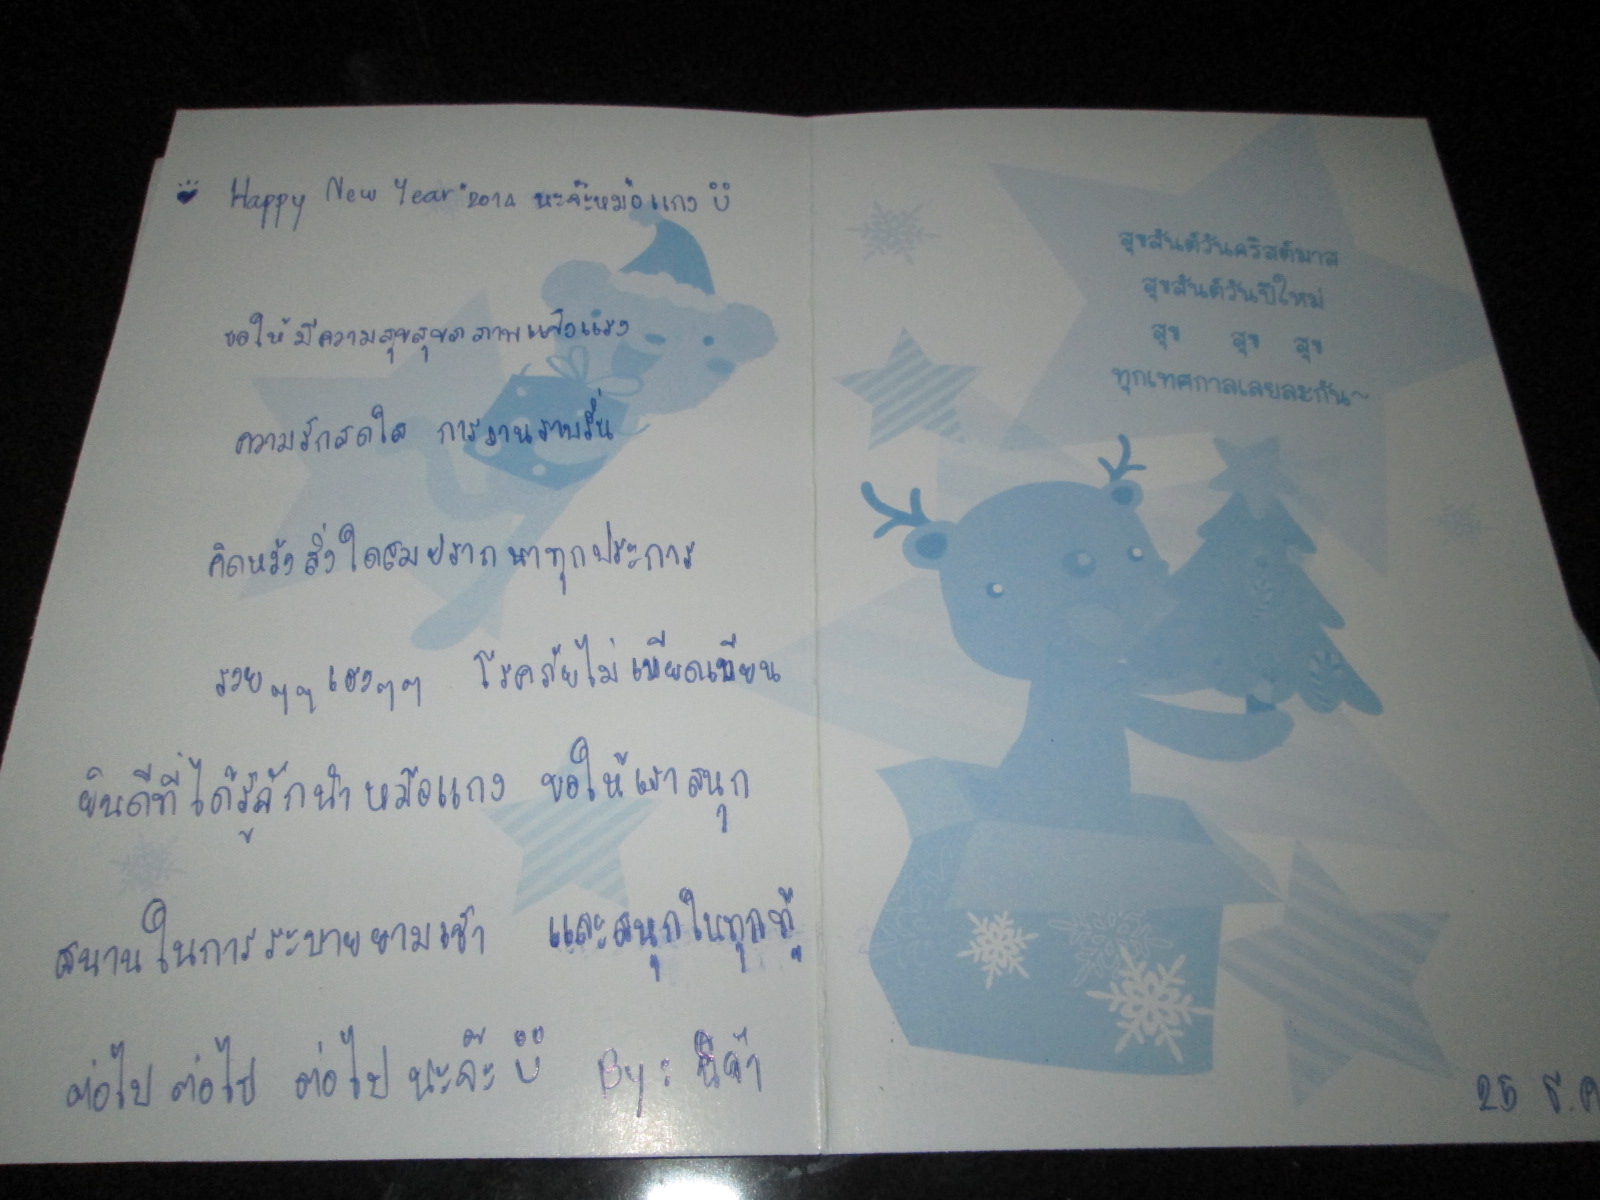 Happy New Year 2014 นะจ๊ะหมอแกง
ขอให้มีความสุขสุขภาพแข็งแรง
ความรักสดใส การงานราบรื่น
คิดหวังสิ่งใดสมปรารถนาทุกประการ
รวยๆๆ เฮงๆๆ โรคภัยไม่เบียดเบียน
ยินดีที่ได้รู้จักน้าหมอแกง ขอให้เราสนุก
สนานในการระบายยามเช้า และสนุกในทุกทู้
ต่อไป ต่อไป ต่อไป นะจ๊ะ By:
สุขสันต์วันคริสต์มาส
สุขสันต์วันปีใหม่
สุข สุข สุข
ทุกเทศกาลเลยละกัน~
25 ธ.ค